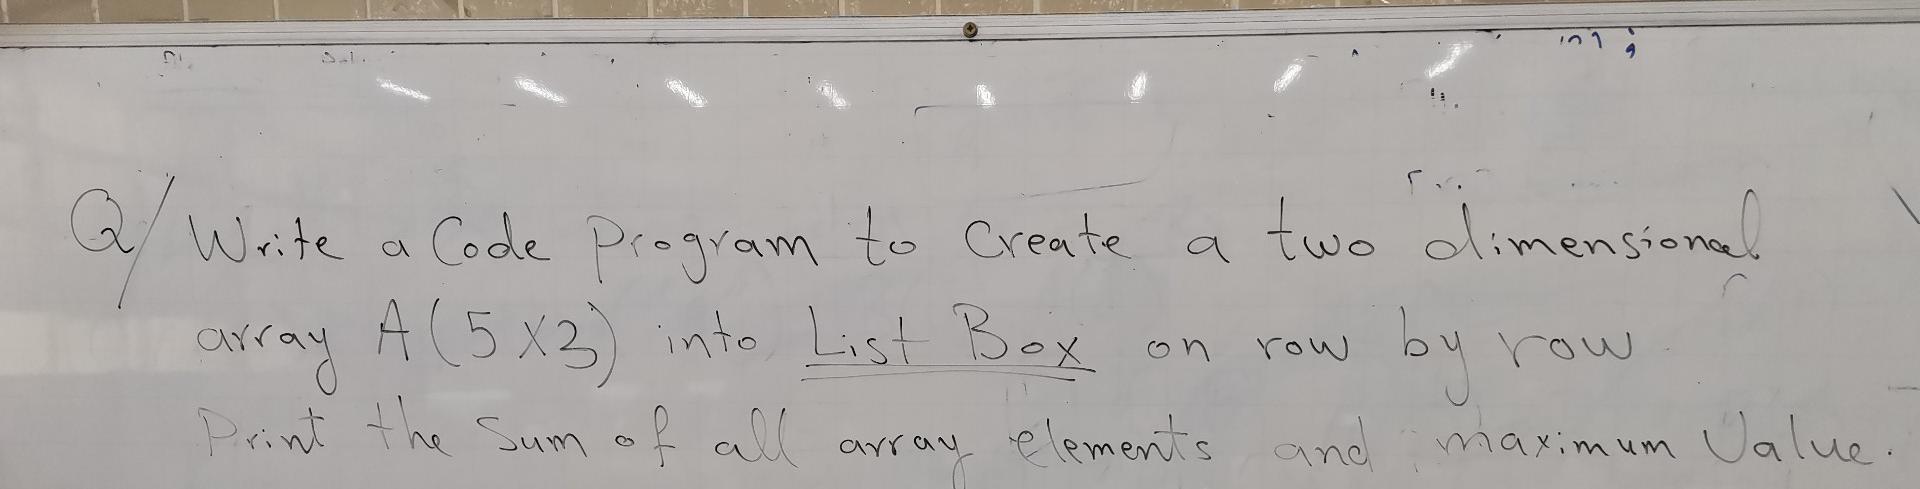 Q/ Write a Code Program to Create a two dimensional
array A(5x3) into List Box on row by row
Print the Sum of all array elements and maximum Value.